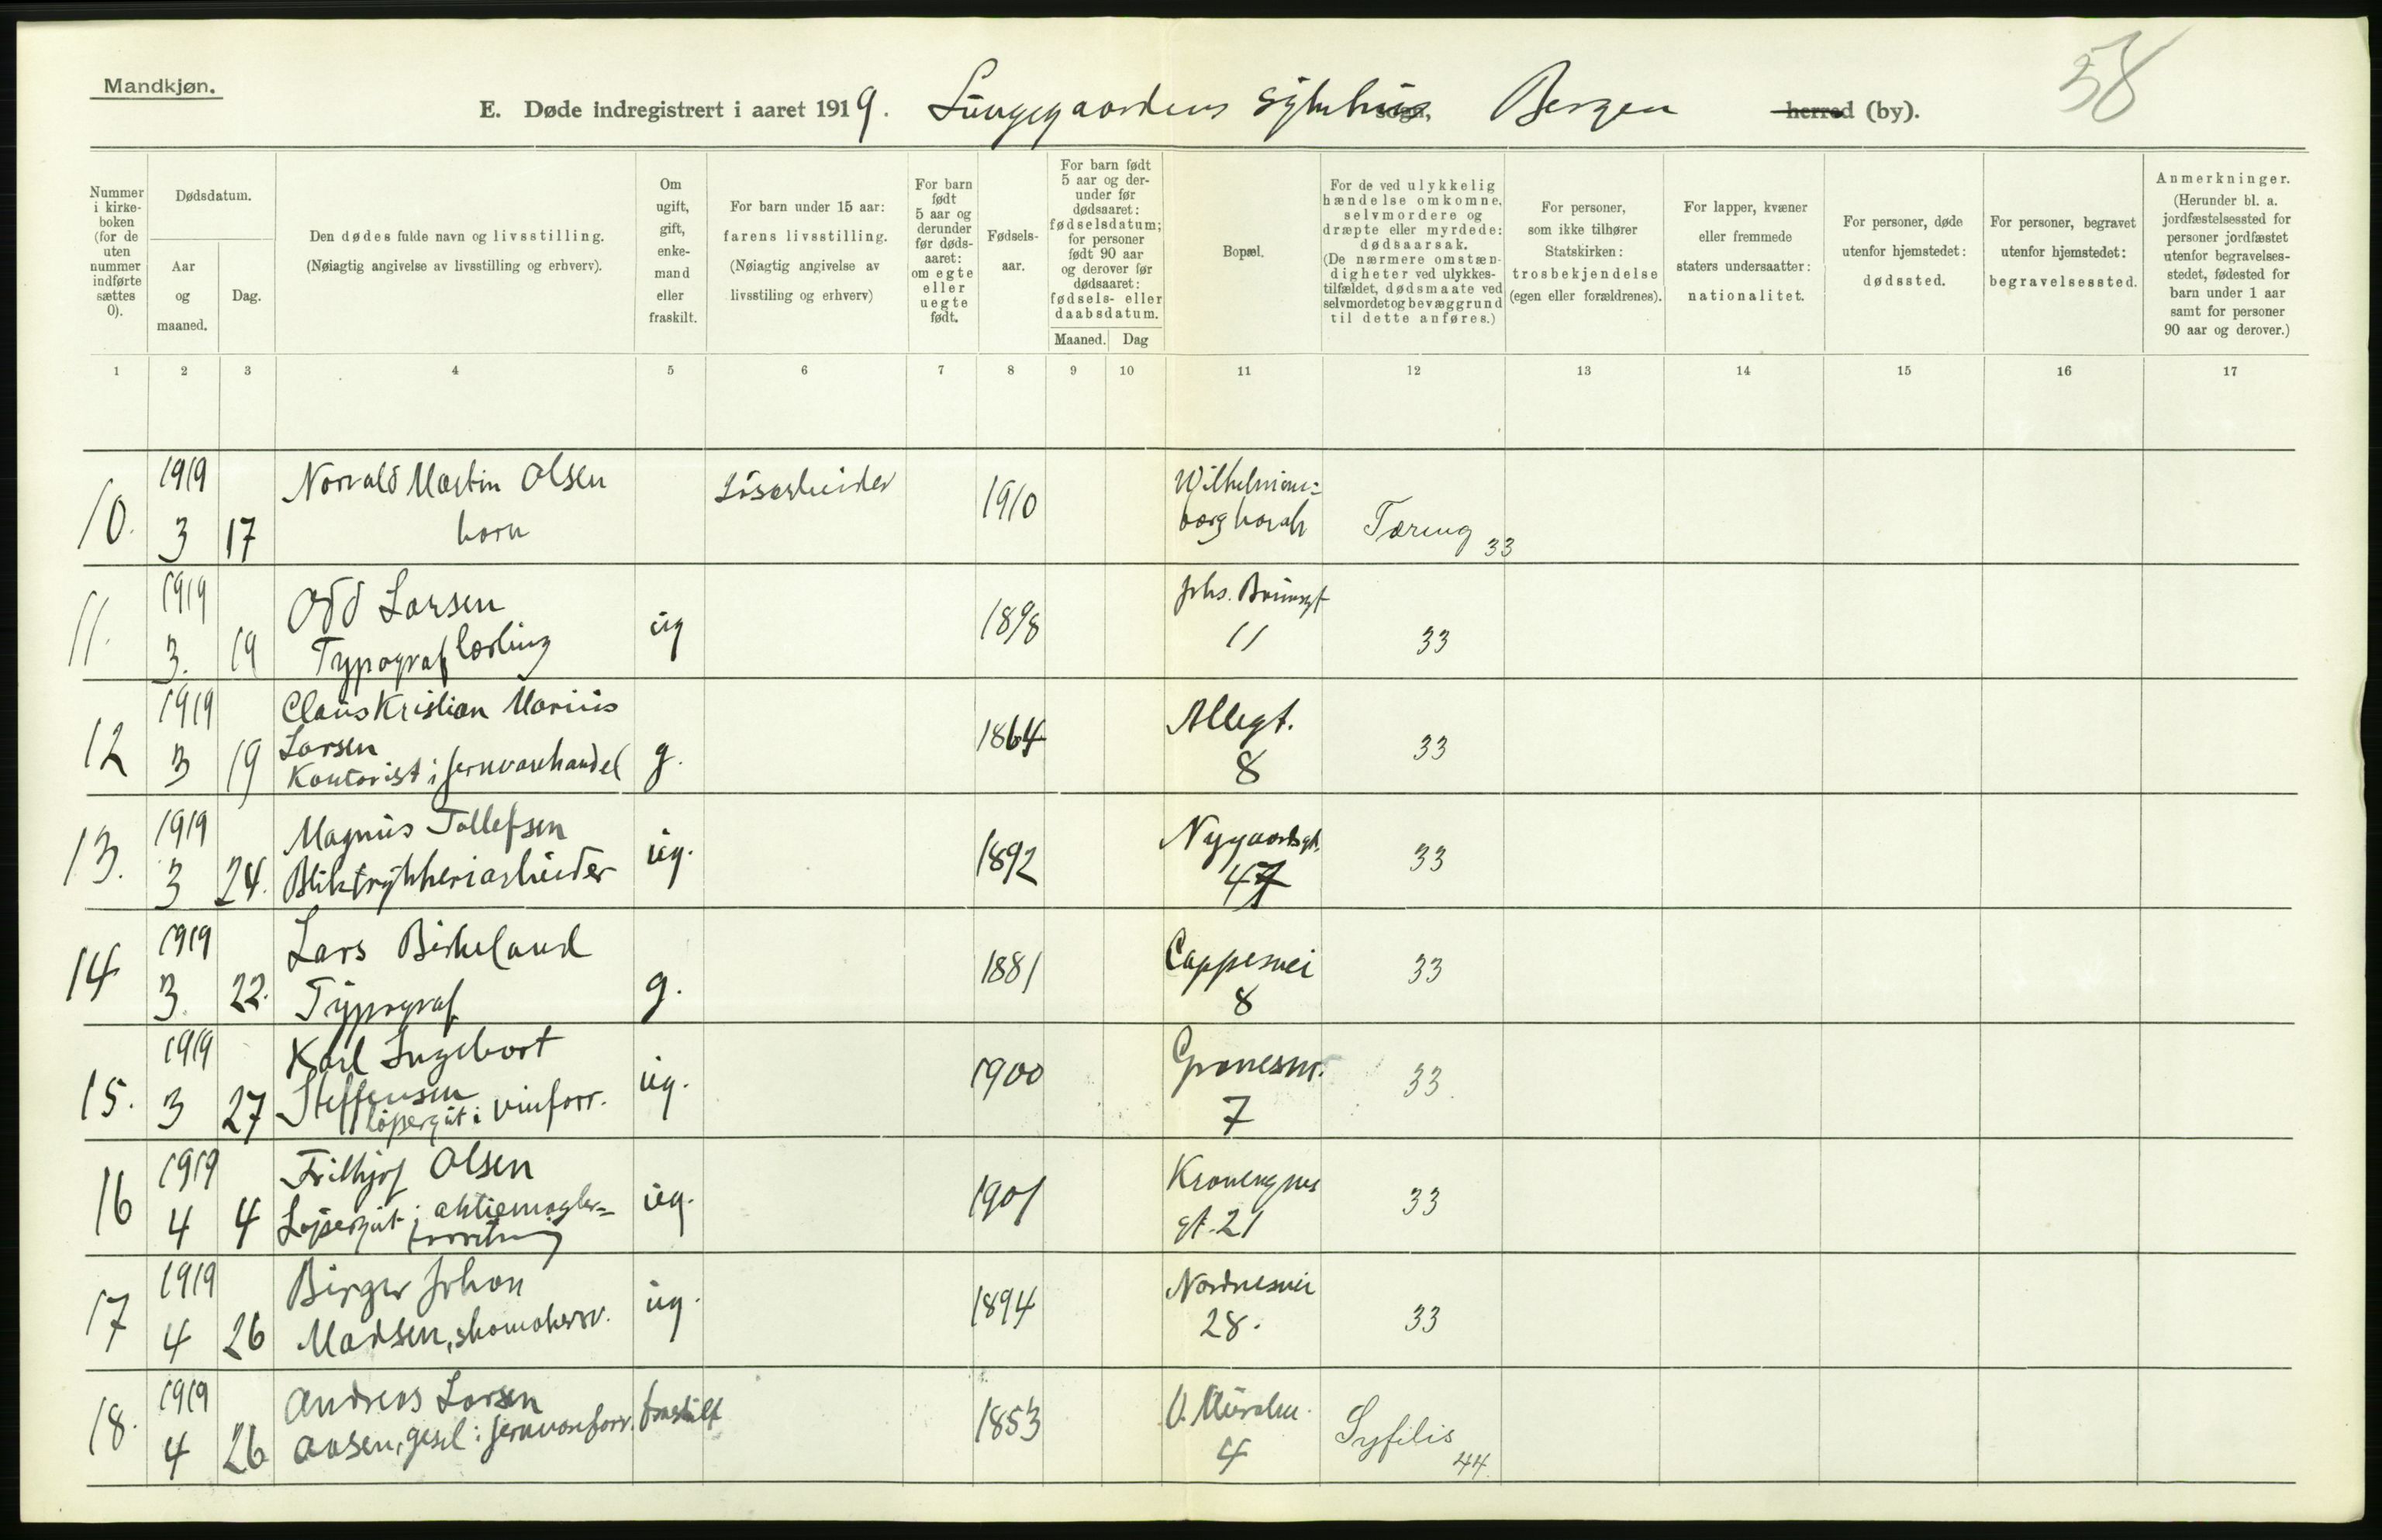 Mandkjøn.
58
E. Døde indregistrert i aaret 1919. Lungegaardens sykehus sogn, Bergen herred (by).
Nummer i kirke-boken (for de uten nummer indførte sættes 0).
Dødsdatum.
Aar og maaned.
Dag.
Den dødes fulde navn og livsstilling.
(Nøiagtig angivelse av livsstilling og erhverv).
Om ugift, gift, enke-mand eller fraskilt.
For barn under 15 aar:
farens livsstilling.
(Nøiagtig angivelse av livsstiling og erhverv)
For barn født 5 aar og derunder før døds-aaret: om egte eller uegte født.
Fødsels-aar.
For barn født 5 aar og der-under før dødsaaret: fødselsdatum; for personer født 90 aar og derover før dødsaaret: fødsels- eller daabsdatum.
Maaned. Dag
Bopæl.
For de ved ulykkelig hændelse omkomne, selvmordere og dræpte eller myrdede: dødsaarsak.
(De nærmere omstæn-digheter ved ulykkes-tilfældet, dødsmaate ved selvmordet og bevæggrund til dette anføres.)
For personer, som ikke tilhører Statskirken: trosbekjendelse (egen eller forældrenes).
For lapper, kvæner eller fremmede staters undersaatter: nationalitet.
For personer, døde utenfor hjemstedet: dødssted.
For personer, begravet utenfor hjemstedet: begravelsessted.
Anmerkninger.
(Herunder bl. a. jordfæstelsessted for personer jordfæstet utenfor begravelses-stedet, fødested for barn under 1 aar samt for personer 90 aar og derover.)
1 2 3 4 5 6 7 8 9 10 11 12 13 14 15 16 17
10. 1919 3 17 Norvald Martin Olsen
barn
Løsarbeider 1910 Tæring 33
11. 1919 3. 19 Odd Larsen
Typograflærling
ug 1898 Johs. Brunsgt
11
33
12 1919 3 19 Claus Kristian Marius
Larsen
Kontorist i jernvarehandel
g. 1864 Allegt.
8
33
13. 1919 3 24. Magnus Tollefsen
Bliktrykkeriarbeider
ug. 1892 Nygaardsgt.
47
33
14 1919 3. 22. Lars Birkeland
Typograf
g. 1881 Cappesvei
8
33
15. 1919 3 27 Karl Ingebart
Steffensen
løpergut i vinforr.
ug. 1900
7
33
16 1919 4 4 Frithjof Olsen
Løpergut i aktiemægler=
forretning
ug. 1901
gt. 21
33
17 1919 4 26 Birger Johan
Madsen, skomakersv.
ug. 1894 Nordnesvei
28.
33
18. 1919 4 26 Andreas Larsen
Aasen, gesel i jernvareforr.
fraskilt 1853
4
Syfilis 44.